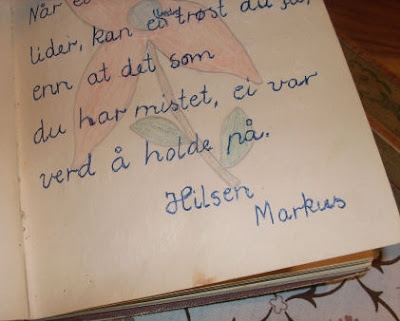 Når
lider, kan ei trøst du få,
enn at det som
du har mistet, ei var
verd å holde på.
Hilsen
Markus